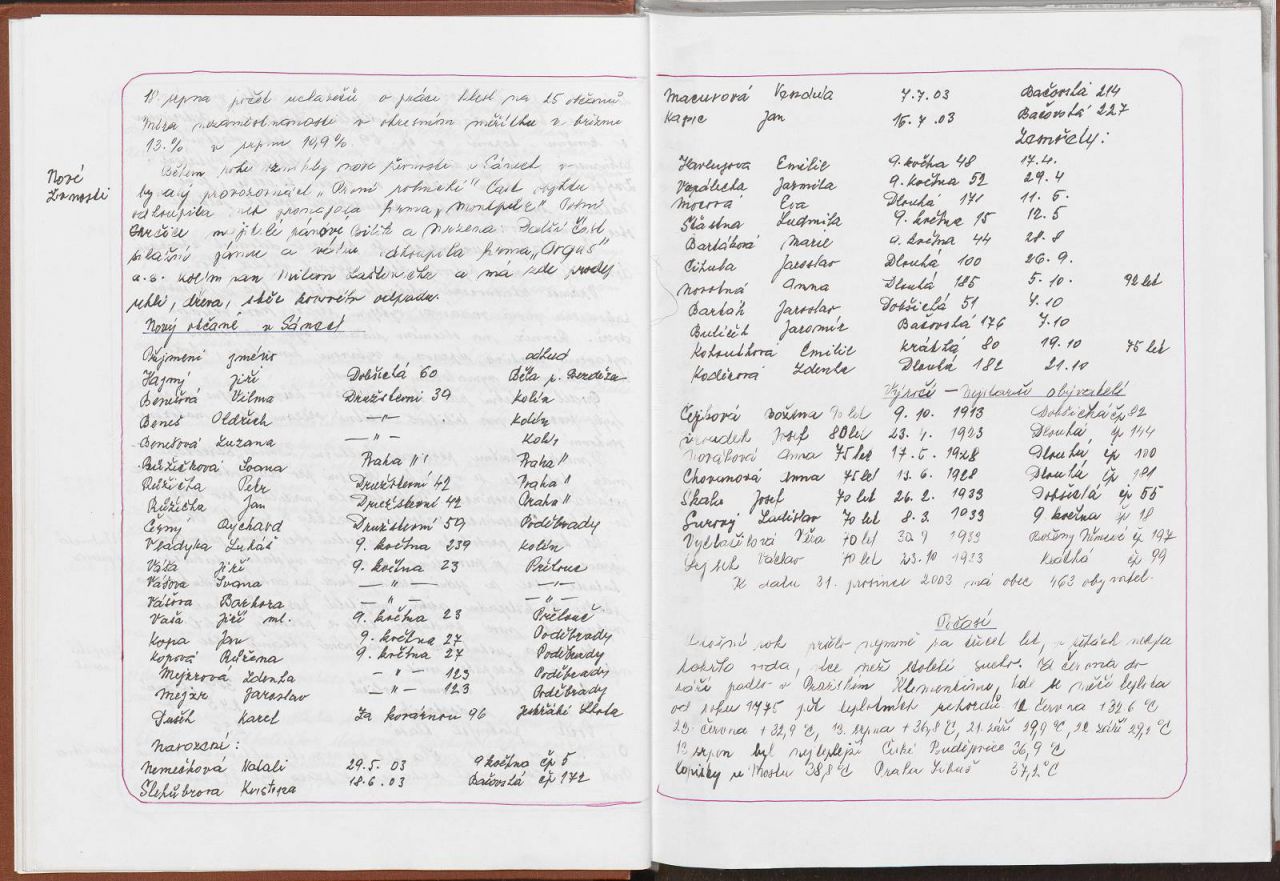 18. srpna počet uchazečů o práci klesl na 25 občanů
Míra nezaměstnanosti v okresním měřítku v březnu
13.% v srpnu 10,9%.
Nové
živnosti
Během roku vznikly nové živnosti v Sánech v
bývalých provozovnách „První rolnické" Část objektu
odkoupila firma „Montpetr" Petr
a Mužena. Další část
silážní jámu a váhu odkoupila firma „Orgus"
a.s. Kolín pan a má zde prodej
uhlí, dřeva, sběr kovového odpadu.
Nový občané v Sánech
Příjmení jméno odkud
Hajný Jiří Dobšická 60 Bělá p. Bezděze
Benešová Vilma Družstevní 39 Kolín
Beneš Oldřich —"— Kolín
Benešová Zuzana —"— Kolín
Růžičková Ivana Praha "
Růžička Petr Družstevní 42 Praha "
Růžička Jan Družstevní 42 Praha "
Černý Rychard Družstevní 59 Poděbrady
Vladyka Lukáš 9. května 239 Kolín
Váša Jiří 9. května 23 Přelouč
Vášova Ivana —"— —"—
Vášova Barbora —"— —"—
Vaša Jiří ml. 9. května 23 Přelouč
Kopa Jan 9. května 27 Poděbrady
Kopová Růžena 9. května 27 Poděbrady
Mejzrová Zdenka —"— 123 Poděbrady
Mejzr Jaroslav —"— 123 Poděbrady
Karel Za kovárnou 96 Lhota
Narození:
Nemešková Natali 29.5. 03 9 května čp 5
18.6.03 Bačovská čp 172
Macurová Vendula 7.7.03 Bačovská 214
Jan 16.7.03 Bačovská 227
Zemřely:
Emilie 9. května 48 17.4.
Jarmila 9. května 52 29.4
Mocová Eva Dlouhá 171 11. 5.
Šťastna Ludmila 9. května 15 12.5
Bartáková Marie 9. května 44 28.8
Cihula Jaroslav Dlouhá 100 26.9.
Novotná Anna Dlouhá 185 5.10. 92 let
Barták Jaroslav Dobšická 51 7.10
Bulíček Jaromír Bačovská 176 7.10
Kohoutková Emilie Krátká 80 19.10 75 let
Kodešová Zdenka Dlouhá 182 21.10
Výročí — Nejstarší obyvatelé
Čejková Božena 90 let 9. 10. 1913 Dobšická čp 92
Josef 80 let 23. 4. 1923 Dlouhá čp 144
Horáková Anna 75 let 17. 5. 1928 Dlouhá čp 100
Anna 75 let 13. 6. 1928 Dlouhá čp 181
Skala Josef 70 let 26. 2. 1933 Dobšická čp 55
Surový Ladislav 70 let 8. 3. 1933 9 května čp 18
Věra 70 let 30 9 1933 Boženy Němcové čp 197
Václav 70 let 23.10 1933 Krátká čp 99
K datu 31. prosince 2003 má obec 463 obyvatel.
Počasí
Letošní rok přišlo nejméně za tisíc let, v řekách
voda, více než století sucho. Od června do
září padlo v Pražském Klementinu, kde se měří teplota
od roku 1775 pět teplotních rekordů, 12 června + 32,6 °C
23. června + 32,9 °C, 13. srpna + 36,8 °C, 21. září 29,9 °C, 22. září 29,2 °C
13 srpen byl nejteplejší České Budějovice 36,9 °C
Kopisty u Mostu 38,8 °C Praha Libuš 37,2 °C